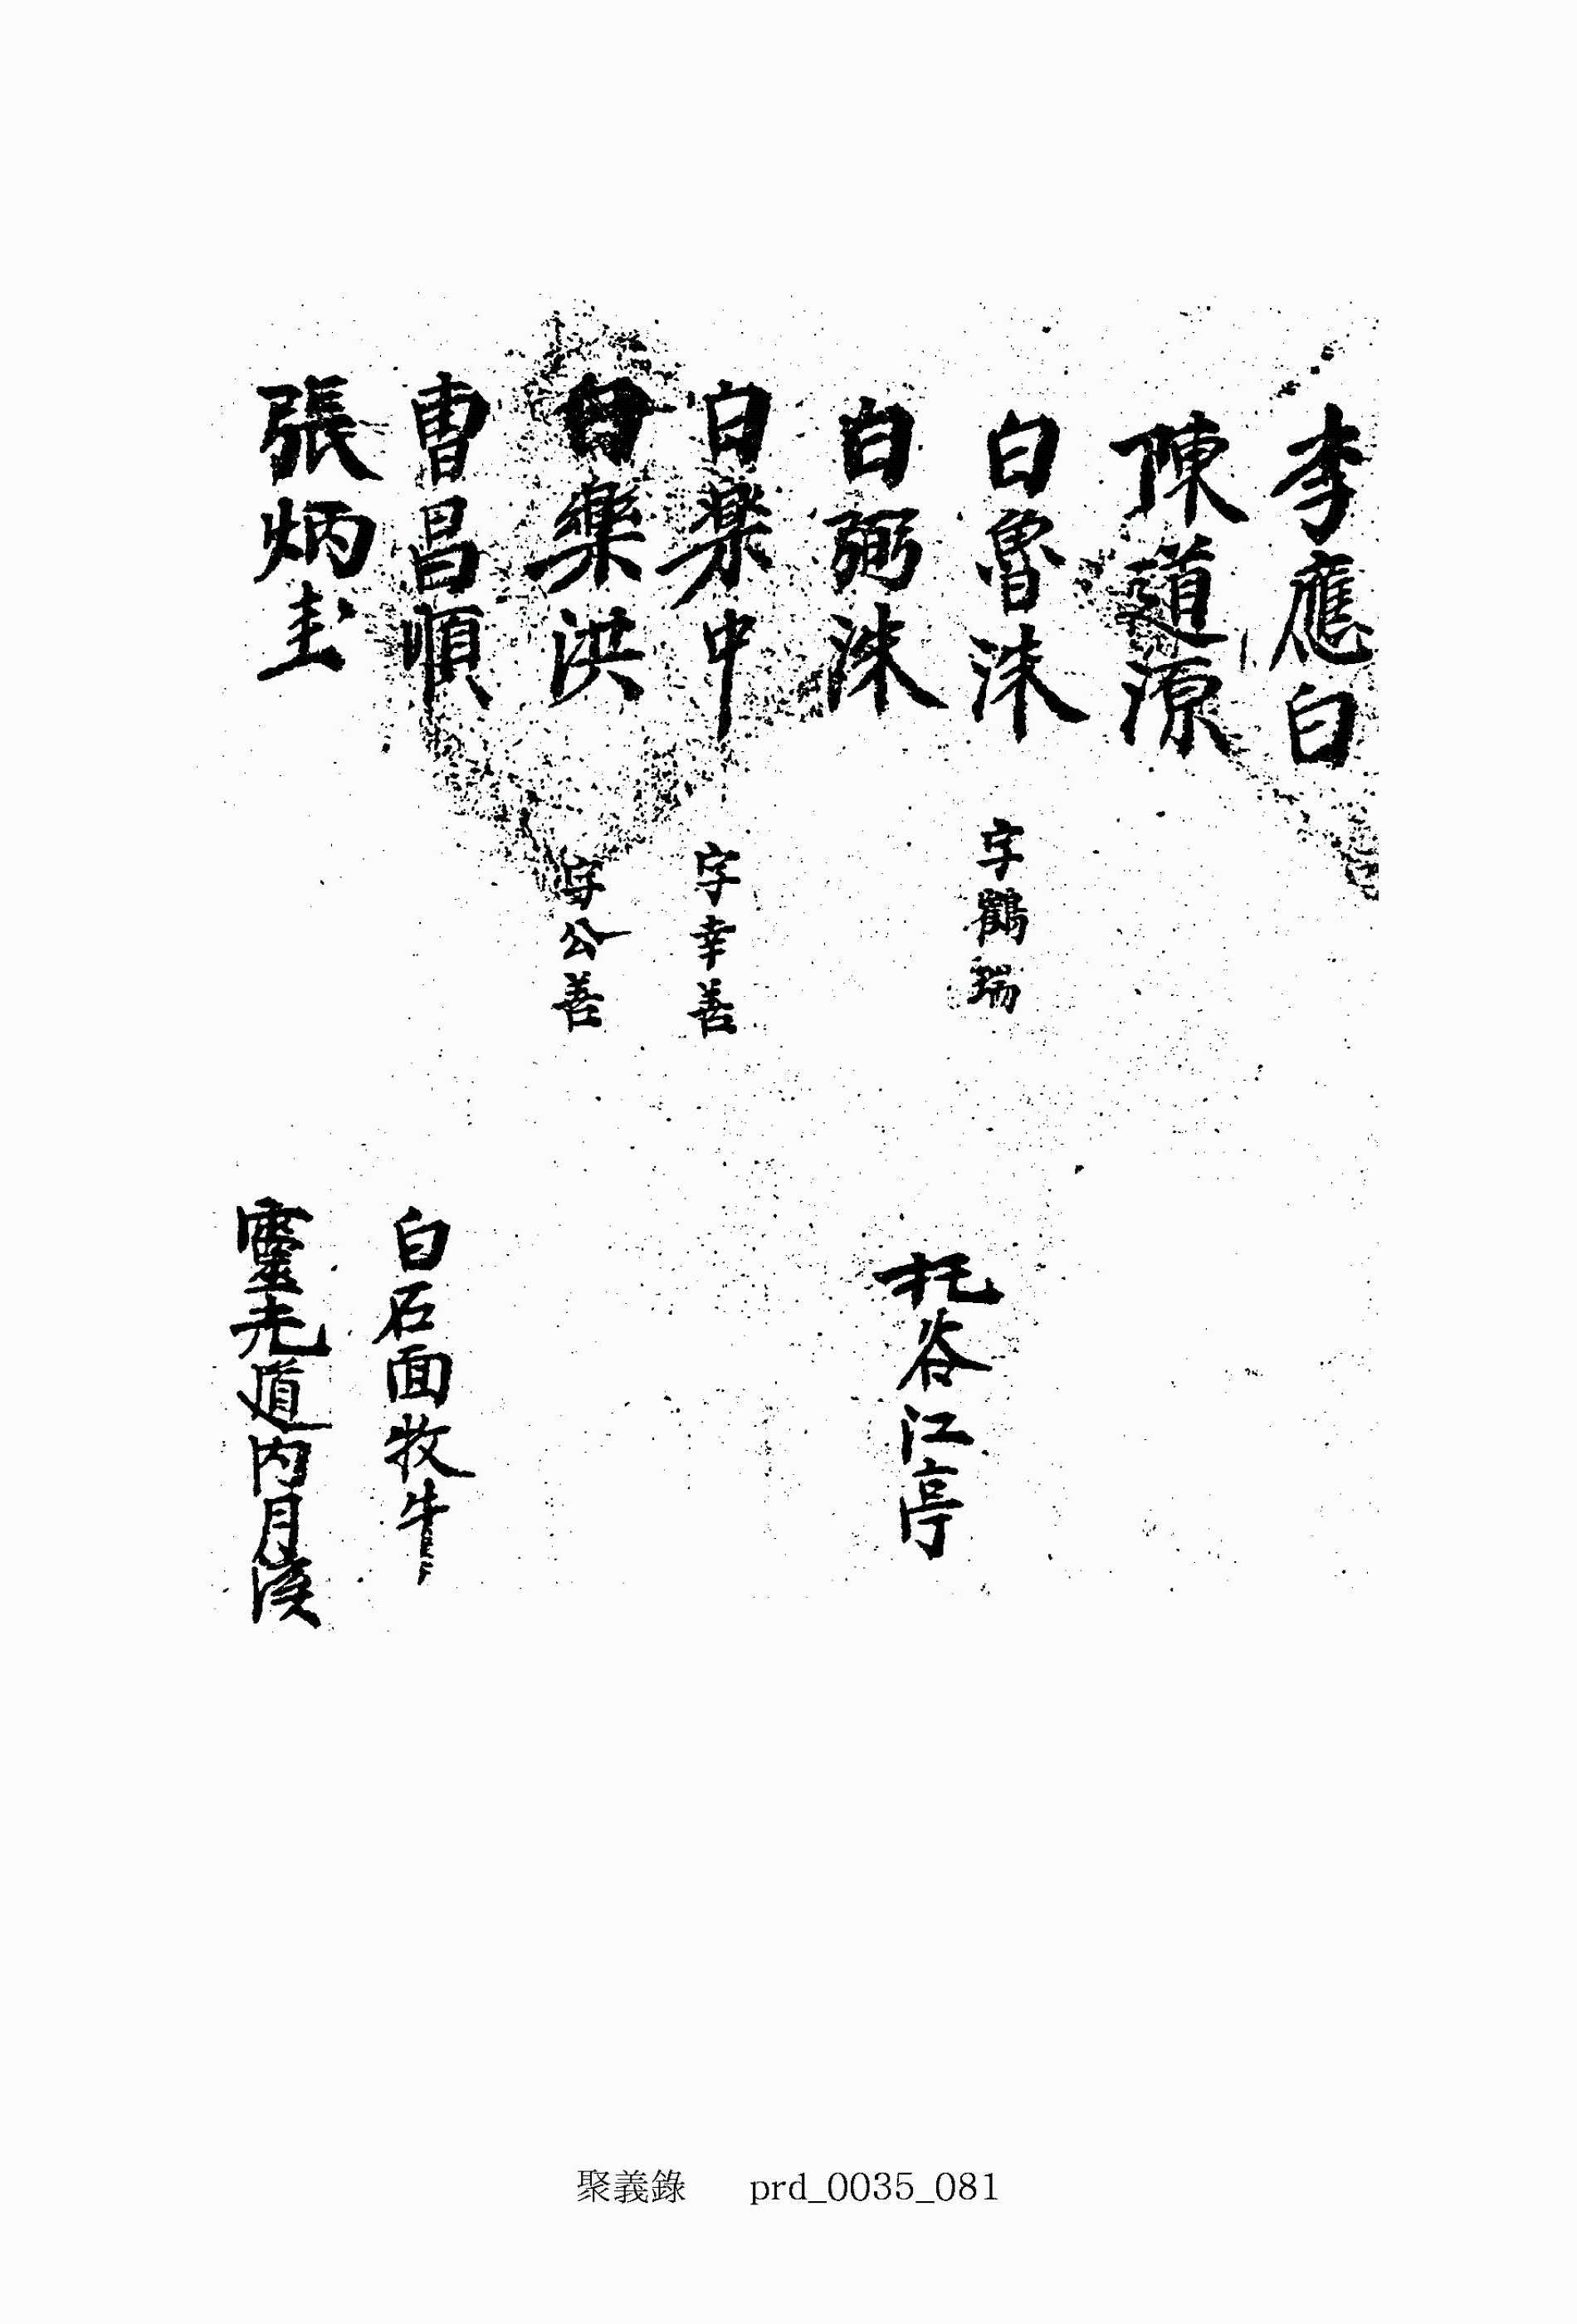 李應白
陳道源
白魯洙 字鶴瑞
白弼洙 托谷江亭
白樂中 字幸善
白樂洪 字公善
曺昌順 白石面牧牛
張炳圭 靈光道內月後
聚義錄 prd_0035_081